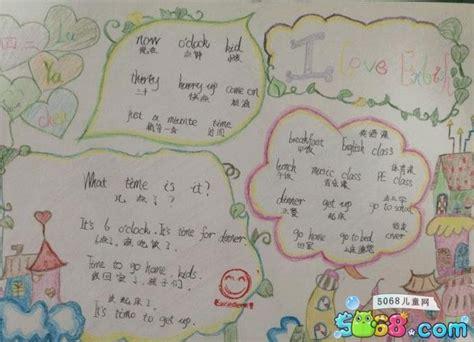 四二
Lu
Ya
now o'clock kid
现在 点钟 小孩
thirty hurry up come on
三十 快点
just a minute time
稍等一会 时间
I Love English
英语课
breakfast English class
早饭
lunch music class PE class
午饭 音乐课 体育课
dinner get up go to school
正餐 起床 去上学
go home go to bed over
回家 上床睡觉 结束
What time is it?
几点了？
It's 6 o'clock. It's time for dinner
Time to go home, kids.
该回家了，孩子们
该起床了。
It's time to get up.
Excellent!
5068儿童网
5068.com